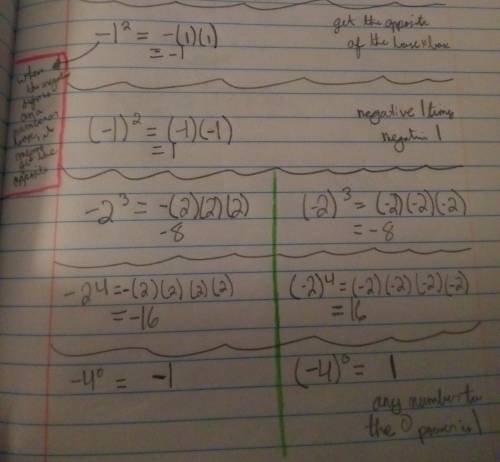 -1² = -(1)(1)
= -1
get the opposite
of the base × base
when
the negative
before
on a
number
opposite
(-1)² = (-1)(-1)
= 1
negative 1 times
negative 1
-2³ = -(2)(2)(2)
-8
(-2)³ = (-2)(-2)(-2)
= -8
-2⁴ = -(2)(2)(2)(2)
= -16
(-2)⁴ = (-2)(-2)(-2)(-2)
= 16
-4⁰ = -1
(-4)⁰ = 1
any number to
the 0 power is 1